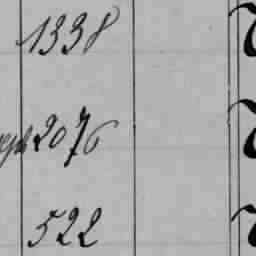 1338
2076
522